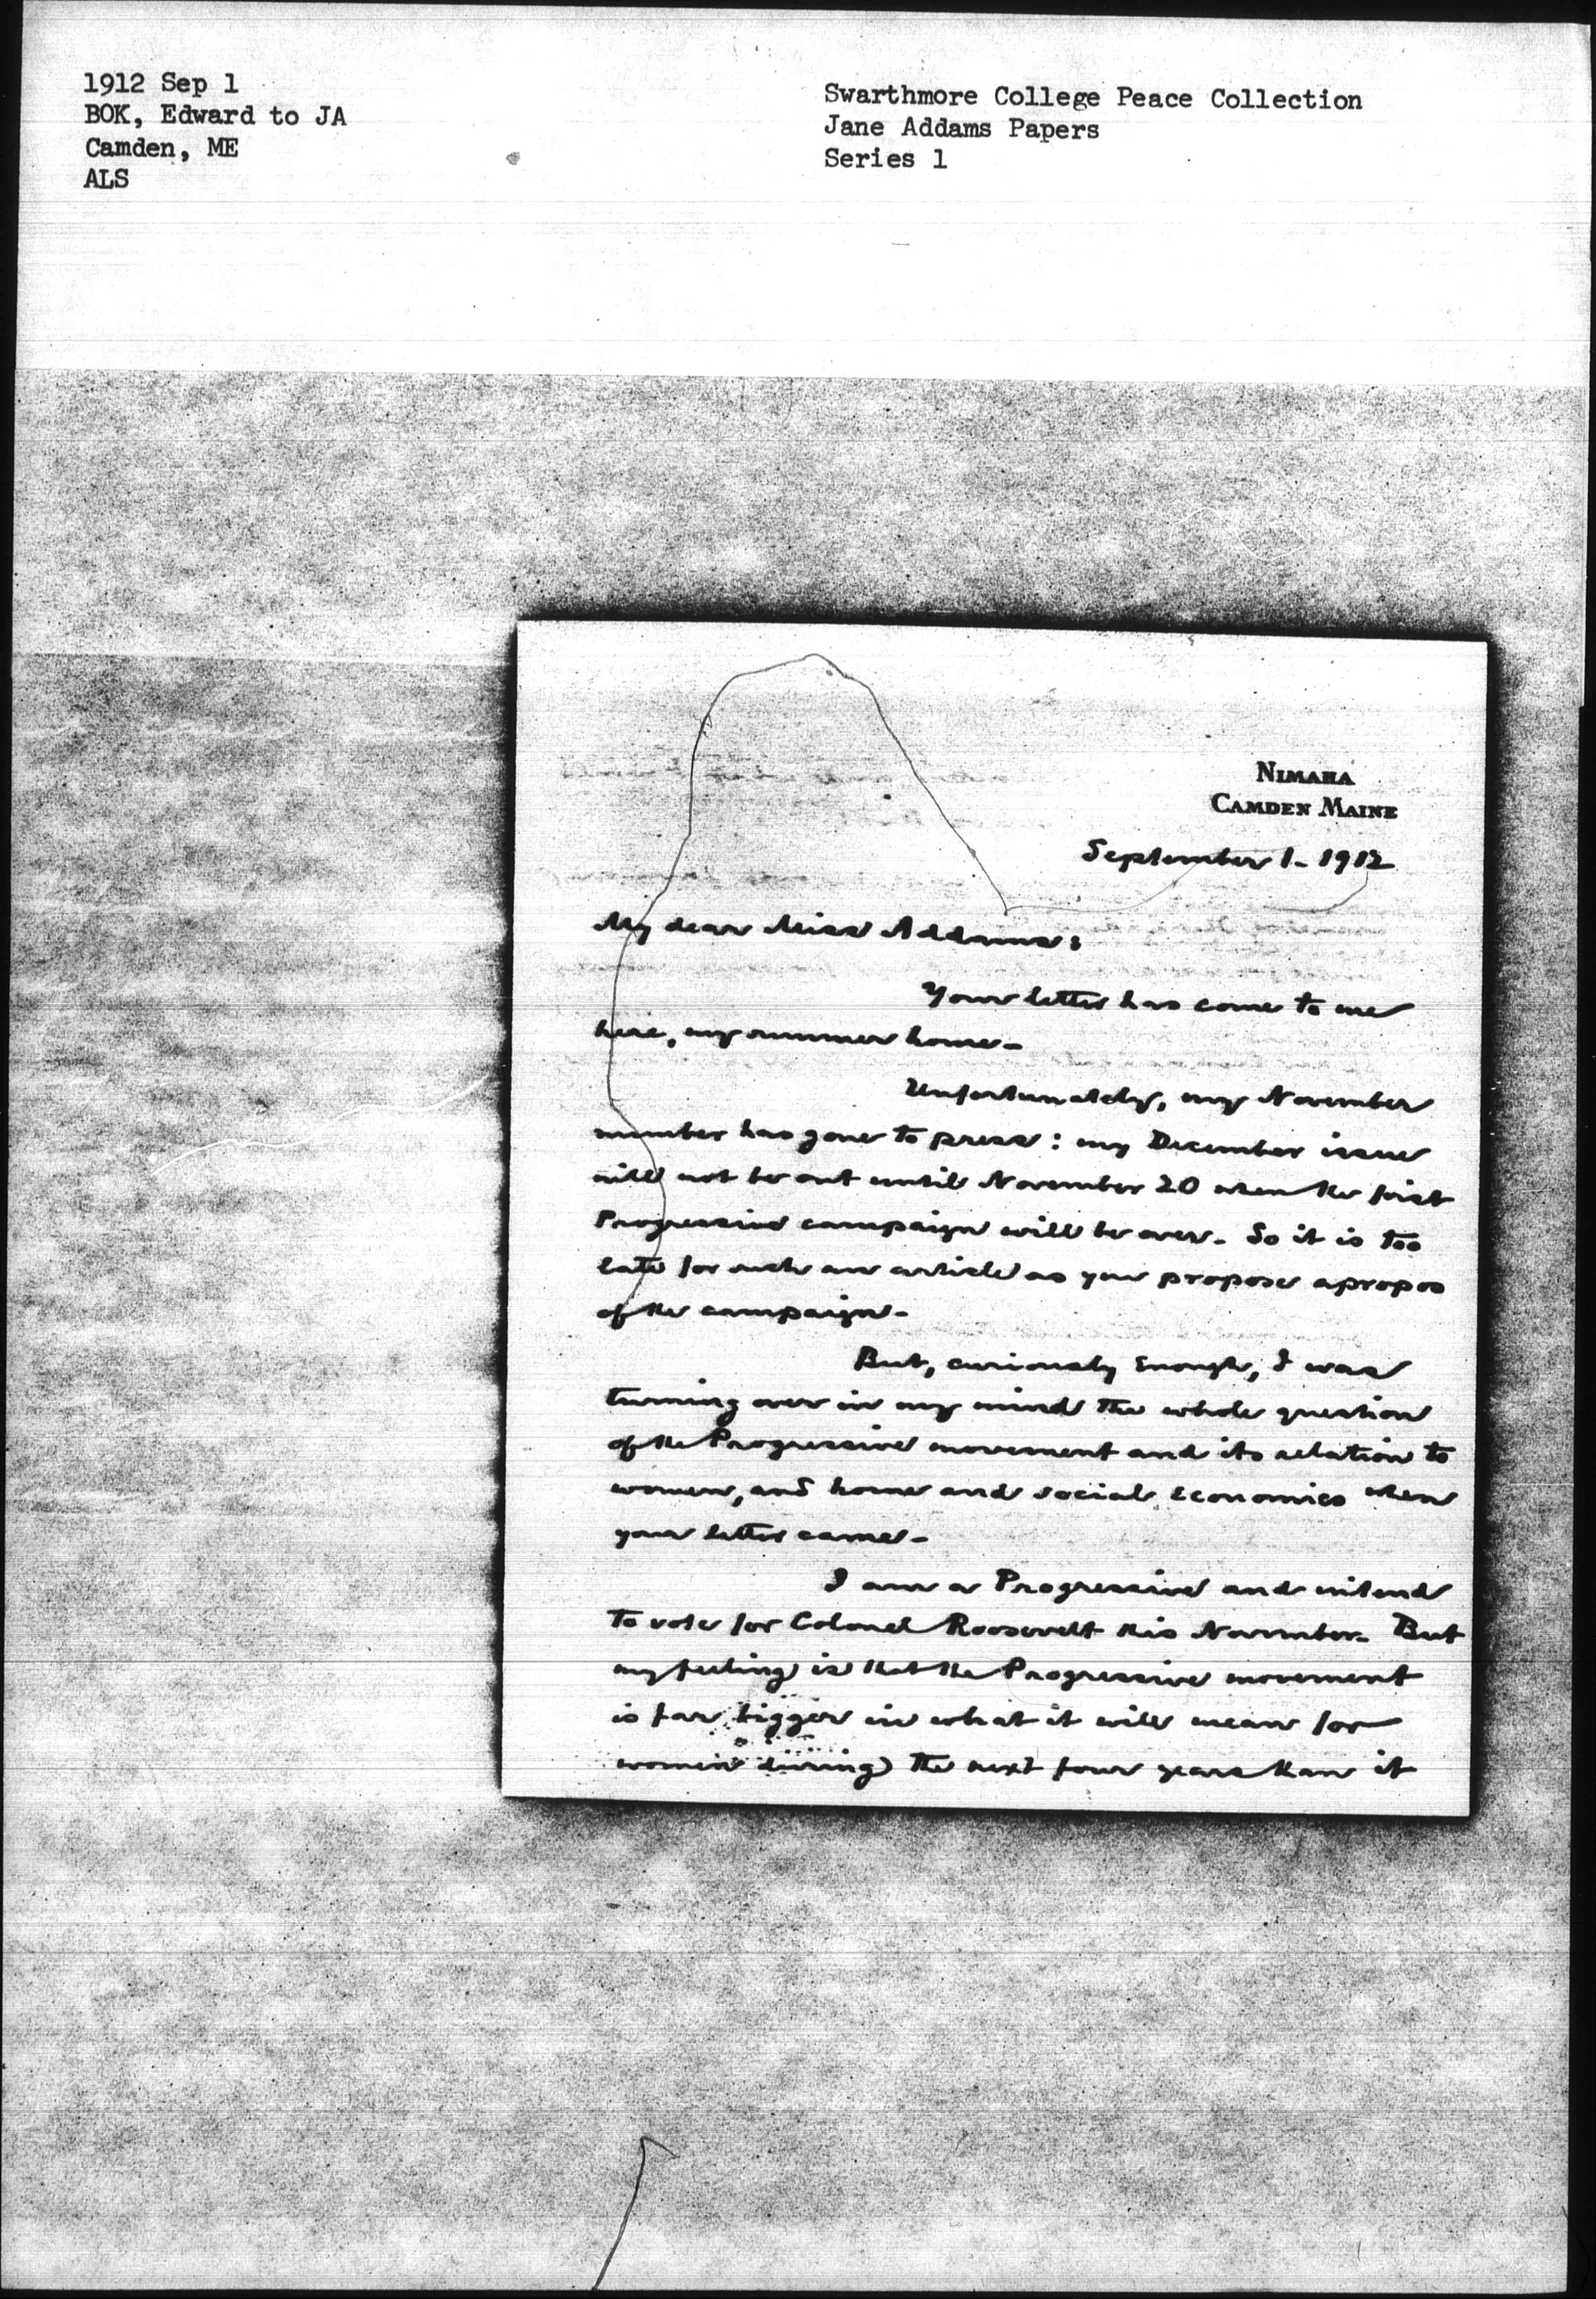 1912 Sep 1
BOK, Edward to JA
Camden, ME
ALS
Swarthmore College Peace Collection
Jane Addams Papers
Series 1
NIMAHA
CAMDEN MAINE
September 1 - 1912
My dear Miss Addams:
Your letter has come to me
here, my summer home -
Unfortunately, my November
number has gone to press: my December issue
will not be out until November 20 when the first
Progressive campaign will be over. So it is too
late for such an article as you propose apropos
of the campaign -
But, curiously enough, I was
turning over in my mind the whole question
of the Progressive movement and its relation to
women, and home and social economics when
your letter came -
I am a Progressive and intend
to vote for Colonel Roosevelt this November. But
my feeling is that the Progressive movement
is far bigger in what it will mean for
women during the next four years than it